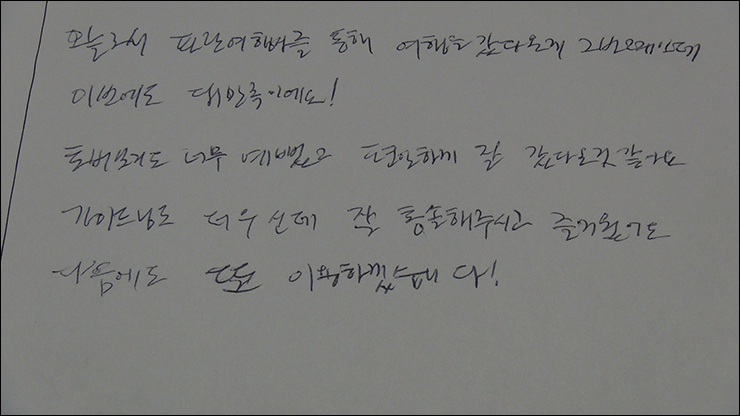 오늘로서 파란여행버스를 통해 여행을 갔다온게 2번째인데
이번에도 대만족이에요!
토버보러도 너무 예뻤고 편안하게 잘 갔다온것 같아요
가이드님도 더우신데 잘 통솔해주시고 즐거웠어요
다음에도 또 이용하겠습니다!